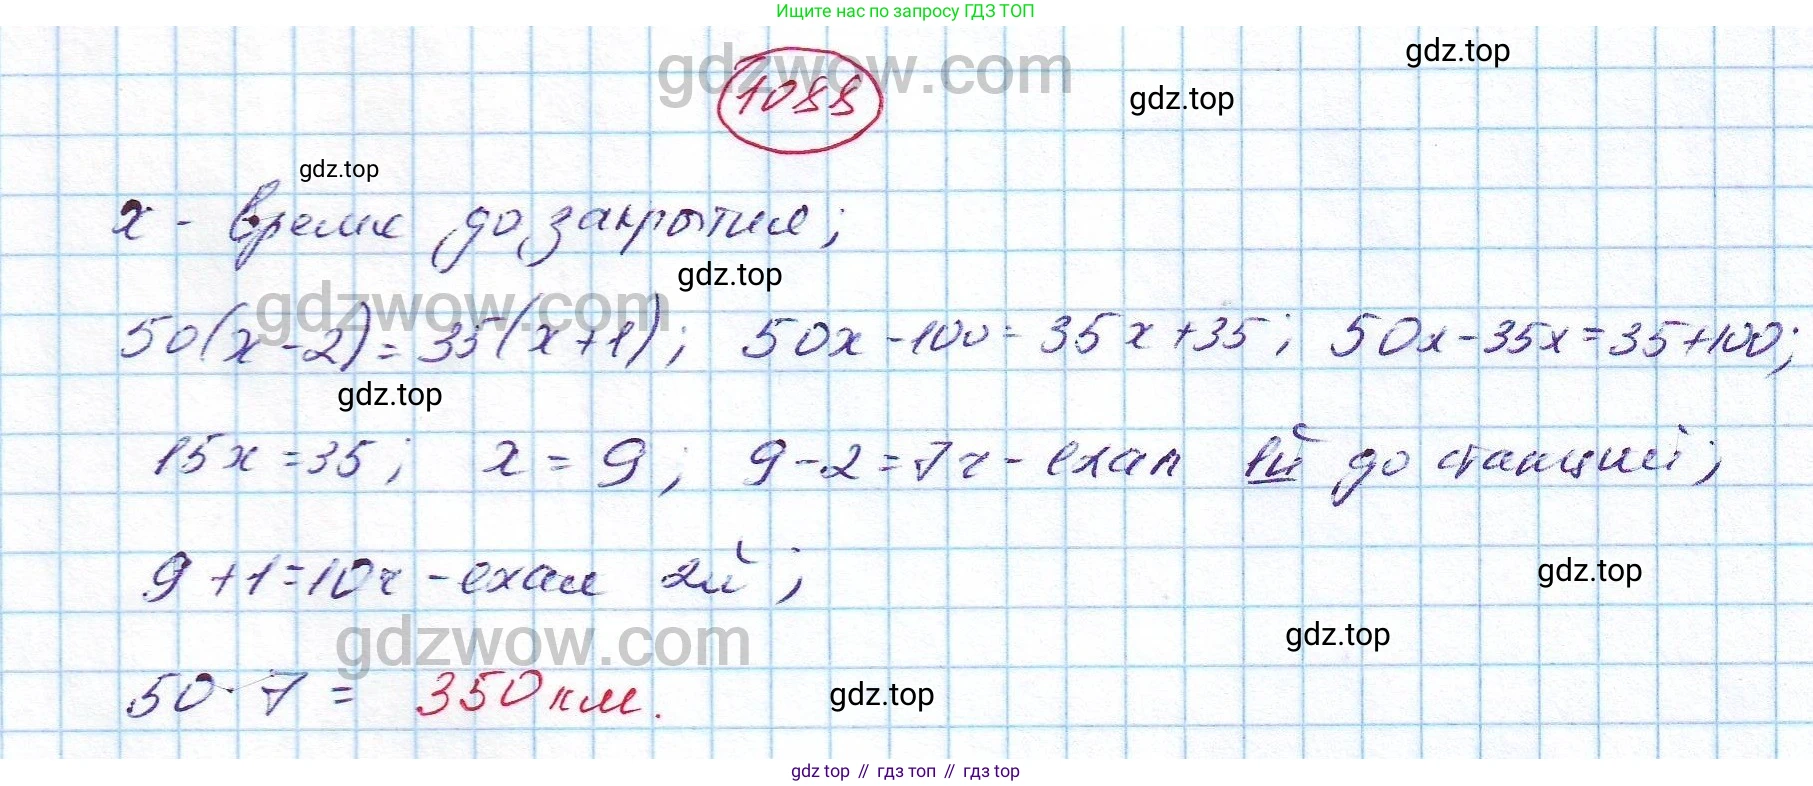 Ищите нас по запросу ГДЗ ТОП
gdz.top
gdzwow.com
1088
gdz.top
gdz.top
x - время до закрытия;
gdz.top
gdzwow.com
50(x-2)=35(x+1); 50x-100=35x+35; 50x-35x=35+100;
gdz.top
15x=35; x=9; 9-2=7ч-ехал 1й до станций;
9+1=10ч-ехал 2й;
gdz.top
gdzwow.com
gdz.top
50·7= 350км.
gdz.top
gdz top // гдз топ // гдз top